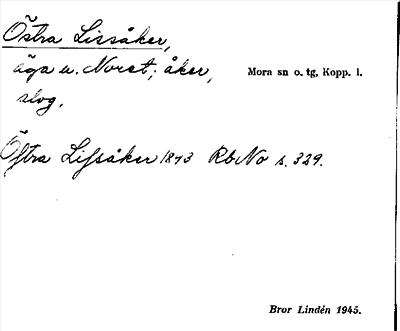 Östra Lissåker,
äga u. Noret; åker,
Mora sn o. tg, Kopp. l.
slog.
Östra Lifsåker 1843 RbNo s. 329.
Bror Lindén 1945.